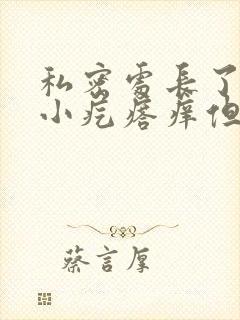 私密處長了
小疙瘩痒但
蔡言厚